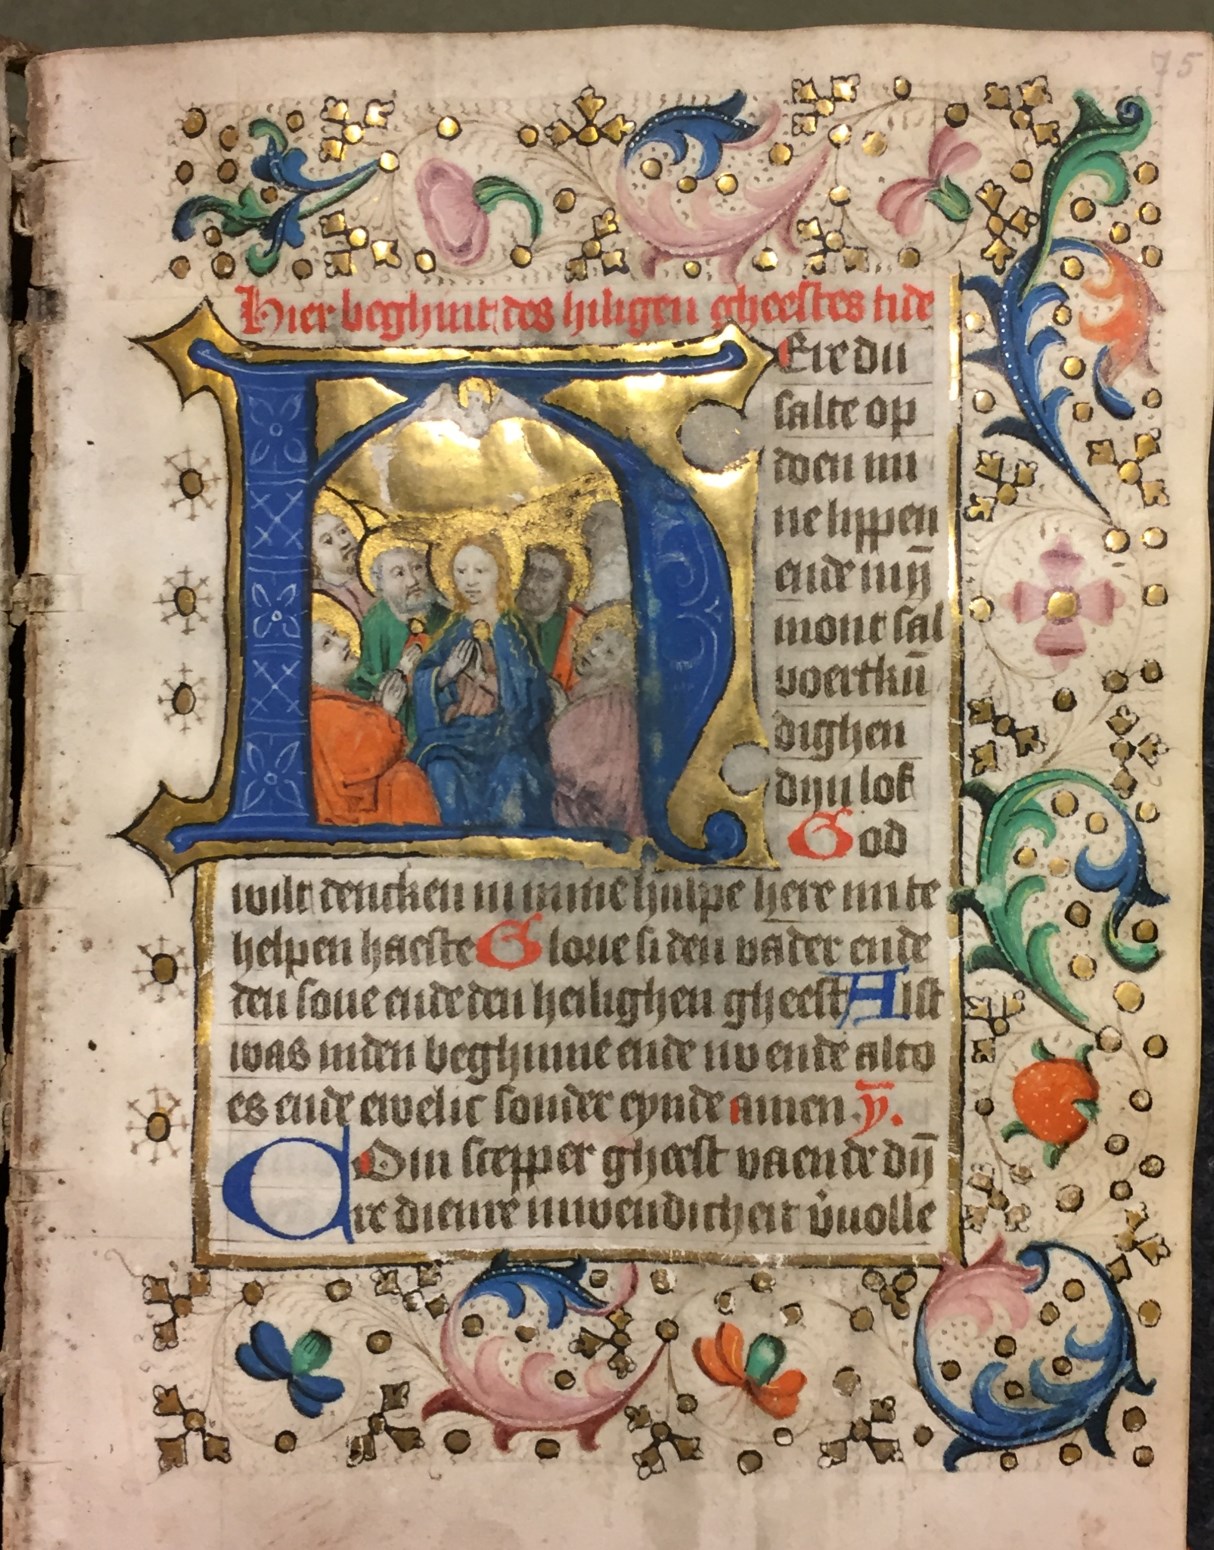 75
Hier beghint des hiligen gheestes tide
HEre du
salte op
doen mi
ne lippen
ende mijn̄
mont sal
voertkū
dighen
dijn lof
God
wilt dencken in mine hulpe here mi te
helpen haeste Glorie si den vader ende
den sone ende den heilighen gheest Alst
was inden beghinne ende nv ende alto
es ende ewelic sonder eynde amen ȳ.
COm scepper gheest vaende dij̄
re dienre inwendicheit v̉uolle